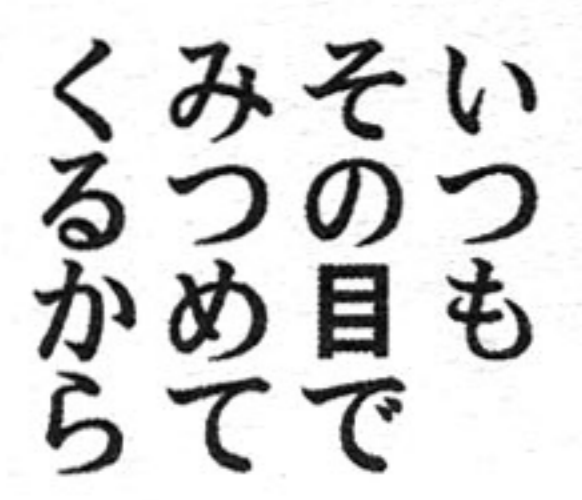 いつも
その目で
みつめて
くるから